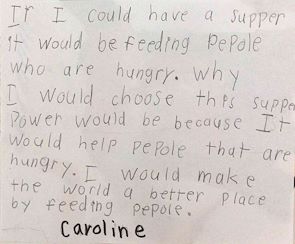 If I could have a supper
it would be feeding pepole
who are hungry. why
I would choose this suppe
Power would be because It
would help pepole that are
hungry. I would make
the world a better place
by feeding pepole.
Caroline